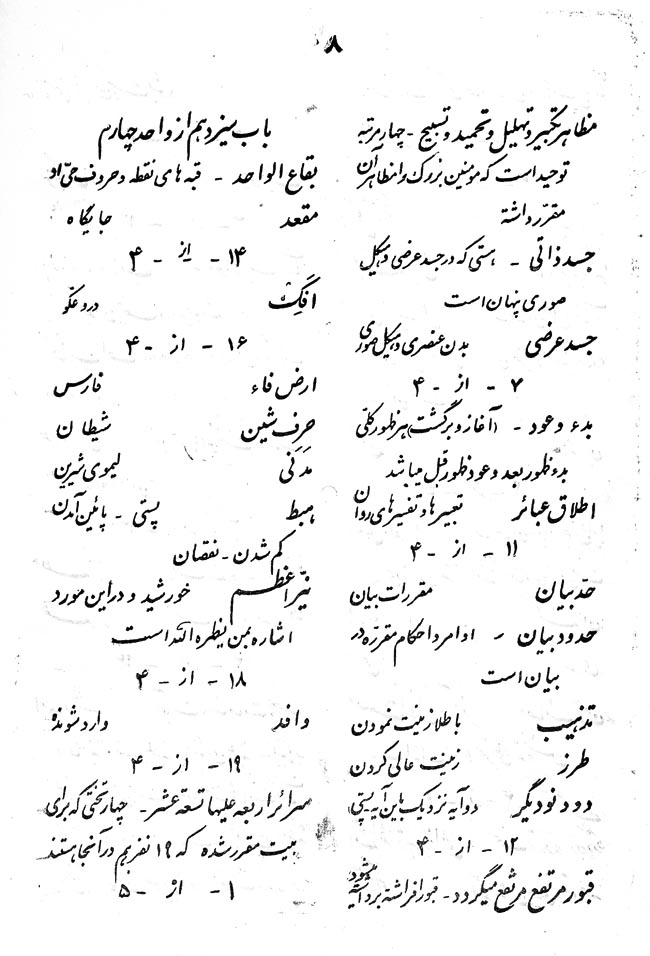 ۸
مظاهر تکبیر و تهلیل و تحمید و تسبیح - چهار مرتبه
توحید است که مؤمنین بزرگ را مظاهر آن
مقرّر داشته
جسد ذاتی - هستی که در جسد عرضی و هیکل
صوری پنهان است
جسد عرضی بدن عنصری و هیکل صوری
۷ - از - ۴
بدء و عود - (آغاز و برگشت) هر ظهور کلّی
بدء ظهور بعد و عود ظهور قبل میباشد
اطلاق عبائر تعبیرها و تفسیرهای روان
۱۱ - از - ۴
حدّ بیان مقررات بیان
حدود بیان - اوامر و احکام مقرّره در
بیان است
تذهیب با طلا زینت نمودن
طرز زینت عالی کردن
دو دنو دیگر دو آیه نزدیک باین آیه
۱۲ - از - ۴
قبور مرتفع مرتفع میگردد - قبور افراشته برداشته میشود
باب سیزدهم از واحد چهارم
بقاع الواحد - قبه های نقطه و حروف حیّ او
مقعد جایگاه
۱۴ - از - ۴
افک دروغگو
۱۶ - از - ۴
ارض فاء فارس
حرف شین شیطان
مدنی لیموی شیرین
هبط پستی - پائین آمدن
کم شدن - نقصان
نیّر اعظم خورشید و در این مورد
اشاره بمن یظهره الله است
۱۸ - از - ۴
وافد وارد شونده
۱۹ - از - ۴
سرائر اربعه علیها تسعة عشر - چهار تختی که برای
بیت مقرر شده که ۱۹ نفر هم در آنجا هستند
۱ - از - ۵